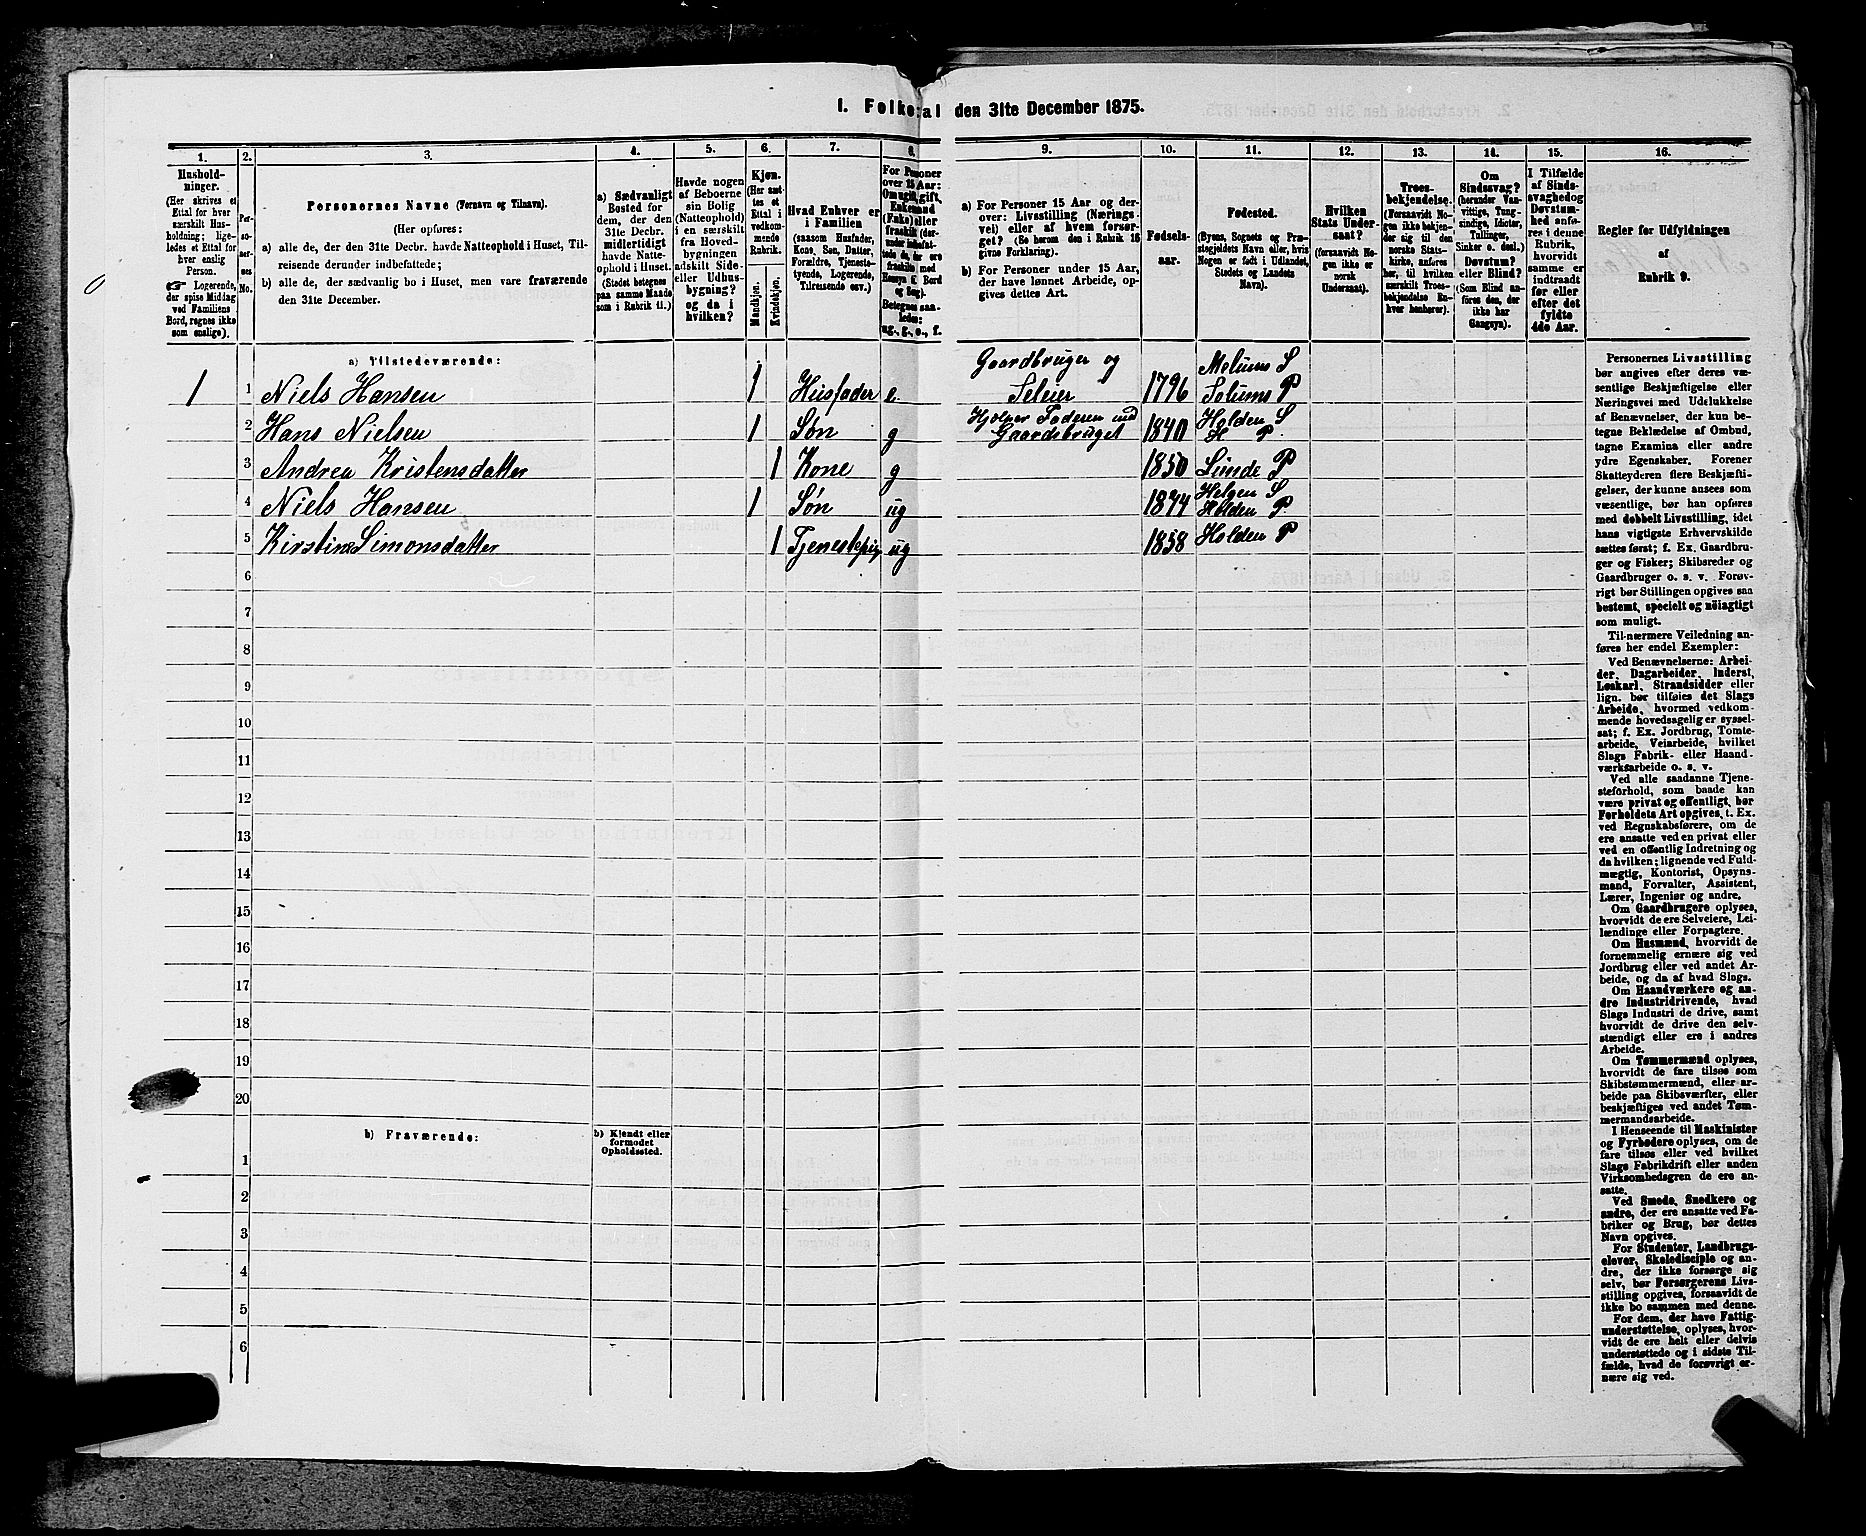 1. Folketal den 31te December 1875.
1.
2.
3.
4.
5.
6.
7.
8.
9.
10.
11.
12.
13.
14.
15.
16.
Hushold-
ninger.
(Her skrives et
Ettal for hver
særskilt Hus-
holdning; lige-
ledes et Ettal for
hver enslig
Person.
☛ Logerende,
der spise Middag
ved Familiens
Bord, regnes ikke
som enslige).
Per-
so-
ner-
nes
No.
Personernes Navne (Fornavn og Tilnavn).
(Her opføres:
a) alle de, der den 31te Decbr. havde Natteophold i Huset, Til-
reisende derunder indbefattede;
b) alle de, der sædvanlig bo i Huset, men vare fraværende
den 31te December.
a) Sædvanligt
Bosted for
dem, der den
31te Decbr.
midlertidigt
havde Natte-
ophold i Huset.
(Stedet betegnes
paa samme Maade
som i Rubrik 11.)
Havde nogen
af Beboerne
sin Bolig
(Natteophold)
i en særskilt
fra Hoved-
bygningen
adskilt Side-
eller Udhus-
bygning?
og da i
hvilken?
Kjøn.
(Her sæt-
tes et
Ettal i
vedkom-
mende
Rubrik.
Mandkjøn.
Kvindekjøn.
Hvad Enhver er
i Familien
(saasom Husfader,
Kone, Søn, Datter,
Forældre, Tjeneste-
tyende, Logerende,
Tilreisende osv.)
For Personer
over 15 Aar:
Om ugift, gift,
Enkemand
(Enke) eller
fraskilt (der-
under indbefat-
tede de, der ere
fraskilte med
Hensyn til Bord
og Seng).
Betegnes saa-
ledes:
ug., g., e., f.
a) For Personer 15 Aar og der-
over: Livsstilling (Nærings-
vei) eller af hvem forsør-
get? (Se herom den i Rubrik 16
givne Forklaring).
b) For Personer under 15 Aar,
der have lønnet Arbeide, op-
gives dettes Art.
Fødsels-
aar.
Fødested.
(Byens, Sognets og Præ-
stegjeldets Navn eller, hvis
Nogen er født i Udlandet,
Stedets og Landets
Navn).
Hvilken
Stats Under-
saat?
(forsaavidt No-
gen ikke er
norsk
Undersaat).
Troes-
bekjendelse.
(Forsaavidt No-
gen ikke bekjen-
der sig til den
norske Stats-
kirke, anføres
her, til hvilken
særskilt Troes-
bekjendelse En-
hver henhører).
Om
Sindssvag?
(herunder Van-
vittige, Tung-
sindige, Idioter,
Tullinger,
Sinker o. desl.)
Døvstum?
eller Blind?
(Som Blind an-
føres den, der
ikke har
Gangsyn).
I Tilfælde
af Sinds-
svaghed og
Døvstum-
hed anfø-
res i denne
Rubrik,
hvorvidt
samme er
indtraadt
før eller
efter det
fyldte
4de Aar.
Regler for Udfyldningen
af
Rubrik 9.
a) Tilstedeværende:
Gaardbruger og Melums S
1 1 Niels Hansen 1 Husfader e. Seleier 1796 Solums P
Hjelper Faderen med Holden S
2 Hans Nielsen 1 Søn g Gaardsbruget 1840 H P.
3 Andrea Kristensdatter 1 Kone g 1850 Sunde P
Helgen S
4 Niels Hansen 1 Søn ug 1874 Holden P
5 Kirstine Simonsdatter 1 Tjenestepig ug 1858 Holden P
6
7
8
9
10
11
12
13
14
15
16
17
18
19
20
b) Fraværende:
b) Kjendt eller
formodet
Opholdssted.
1
2
3
4
5
6
Personernes Livsstilling
bør angives efter deres væ-
sentlige Beskjæftigelse eller
Næringsvei med Udelukkelse
af Benævnelser, der kun be-
tegne Beklædelse af Ombud,
tagne Examina eller andre
ydre Egenskaber. Forener
Skatteyderen flere Beskjæfti-
gelser, der kunne ansees som
væsentlige, bør han opføres
med dobbelt Livsstilling, idet
hans vigtigste Erhvervskilde
sættes først; f. Ex. Gaardbru-
ger og Fisker; Skibsreder og
Gaardbruger o. s. v. Forøv-
rigt bør Stillingen opgives saa
bestemt, specielt og nöiagtigt
som muligt.
Til nærmere Veiledning an-
føres her endel Exempler:
Ved Benævnelserne: Arbei-
der, Dagarbeider, Inderst,
Løskarl, Strandsidder eller
lign. bør tilføies det Slags
Arbeide, hvormed vedkom-
mende hovedsagelig er syssel-
sat; f. Ex. Jordbrug, Tomte-
arbeide, Veiarbeide, hvilket
Slags Fabrik- eller Haand-
værksarbeide o. s. v.
Ved alle saadanne Tjene-
steforhold, som baade kan
være privat og offentligt, bør
Forholdets Art opgives, t. Ex.
ved Regnskabsførere, om de
ere ansatte ved en privat eller
ved en offentlig Indretning og
da hvilken; lignende ved Fuld-
mægtig, Kontorist, Opsyns-
mand, Forvalter, Assistent,
Lærer, Ingeniør og andre.
Om Gaardbrugere oplyses,
hvorvidt de ere Selveiere, Lei-
lændinge eller Forpagtere.
Om Husmænd, hvorvidt de
fornemmelig ernære sig ved
Jordbrug eller ved andet Ar-
beide, og da af hvad Slags.
Om Haandværkere og an-
dre Industridrivende, hvad
Slags Industri de drive, samt
hvorvidt de drive den selv-
stændigt eller ere i andres
Arbeide.
Om Tømmermænd oplyses,
hvorvidt de fare tilsøs som
Skibstømmermænd, eller ar-
beide paa Skibsværfter, eller
beskjæftiges ved andet Tøm-
mermandsarbeide.
I Henseende til Maskinister
og Fyrbødere oplyses, om de
fare tilsøs eller ved hvilket
Slags Fabrikdrift eller anden
Virksomhedsgren de ere an-
satte.
Ved Smede, Snedkere og
andre, der ere ansatte ved Fa-
briker og Brug, bør dettes
Navn opgives.
For Studenter, Landbrugs-
elever, Skoledisciple og an-
dre, der ikke forsørge sig
selv, bør Forsørgerens Livs-
stilling opgives, forsaavidt de
ikke bo sammen med denne.
For dem, der have Fattig-
understøttelse, oplyses, hvor-
vidt de ere helt eller delvis
understøttede og i sidste Til-
fælde, hvad de forøvrigt er-
nære sig ved.